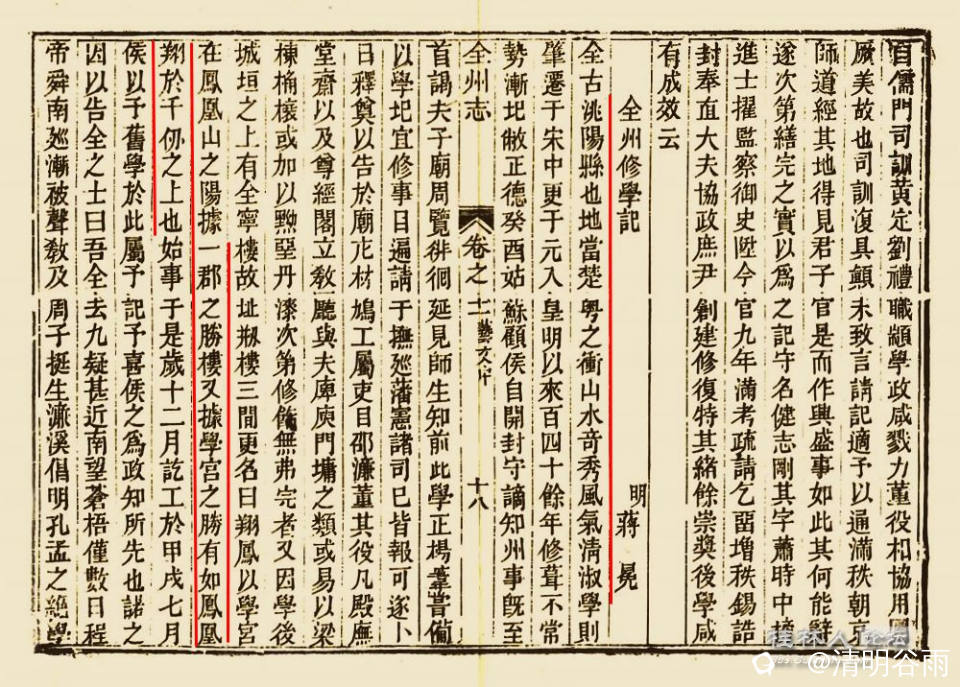 百儒門司訓黃定劉禮職顓學政咸戮力董役相協用
厥美故也司訓復具顛末致言請記適予以通滿秩朝京
師道經其地得見君子官是而作興盛事如此其何能辭
遂次第繕完之實以爲之記守名健志剛其字蕭時中
進士擢監察御史陞今官九年滿考疏請乞畱增秩錫誥
封奉直大夫協政庶尹創建修復特其緒餘崇獎後學咸
有成效云
全州修學記 明 蔣冕
全古洮陽縣也地當楚粵之衝山水奇秀風氣淸淑學則
肇遷于宋中更于元入皇明以來百四十餘年修葺不常
勢漸圯敝正德癸酉姑蘇顧侯自開封守謫知州事旣至
全州志 卷之十二 藝文 十八
首謁夫子廟周覽徘徊延見師生知前此學正楊羣嘗備
以學圯宜修事目遍請于撫廵藩憲諸司巳皆報可遂卜
日釋奠以告於廟庀材鳩工屬吏目邵濂董其役凡殿廡
堂齋以及尊經閣立敎廳與夫庫庾門墉之類或易以梁
棟桷榱或加以黝堊丹漆次第修餙無弗完者又因學後
城垣之上有全寧樓故址剏樓三間更名曰翔鳳以學宮
在鳳凰山之陽據一郡之勝樓又據學宮之勝有如鳳凰
翔於千仞之上也始事于是歲十二月訖工於甲戌七月
侯以予舊學於此屬予記予喜侯之爲政知所先也諾之
因以告全之士曰吾全去九疑甚近南望蒼梧僅數日程
帝舜南廵漸被聲敎及周子挺生濂溪倡明孔孟之絶學
桂林人论坛
@清明谷雨